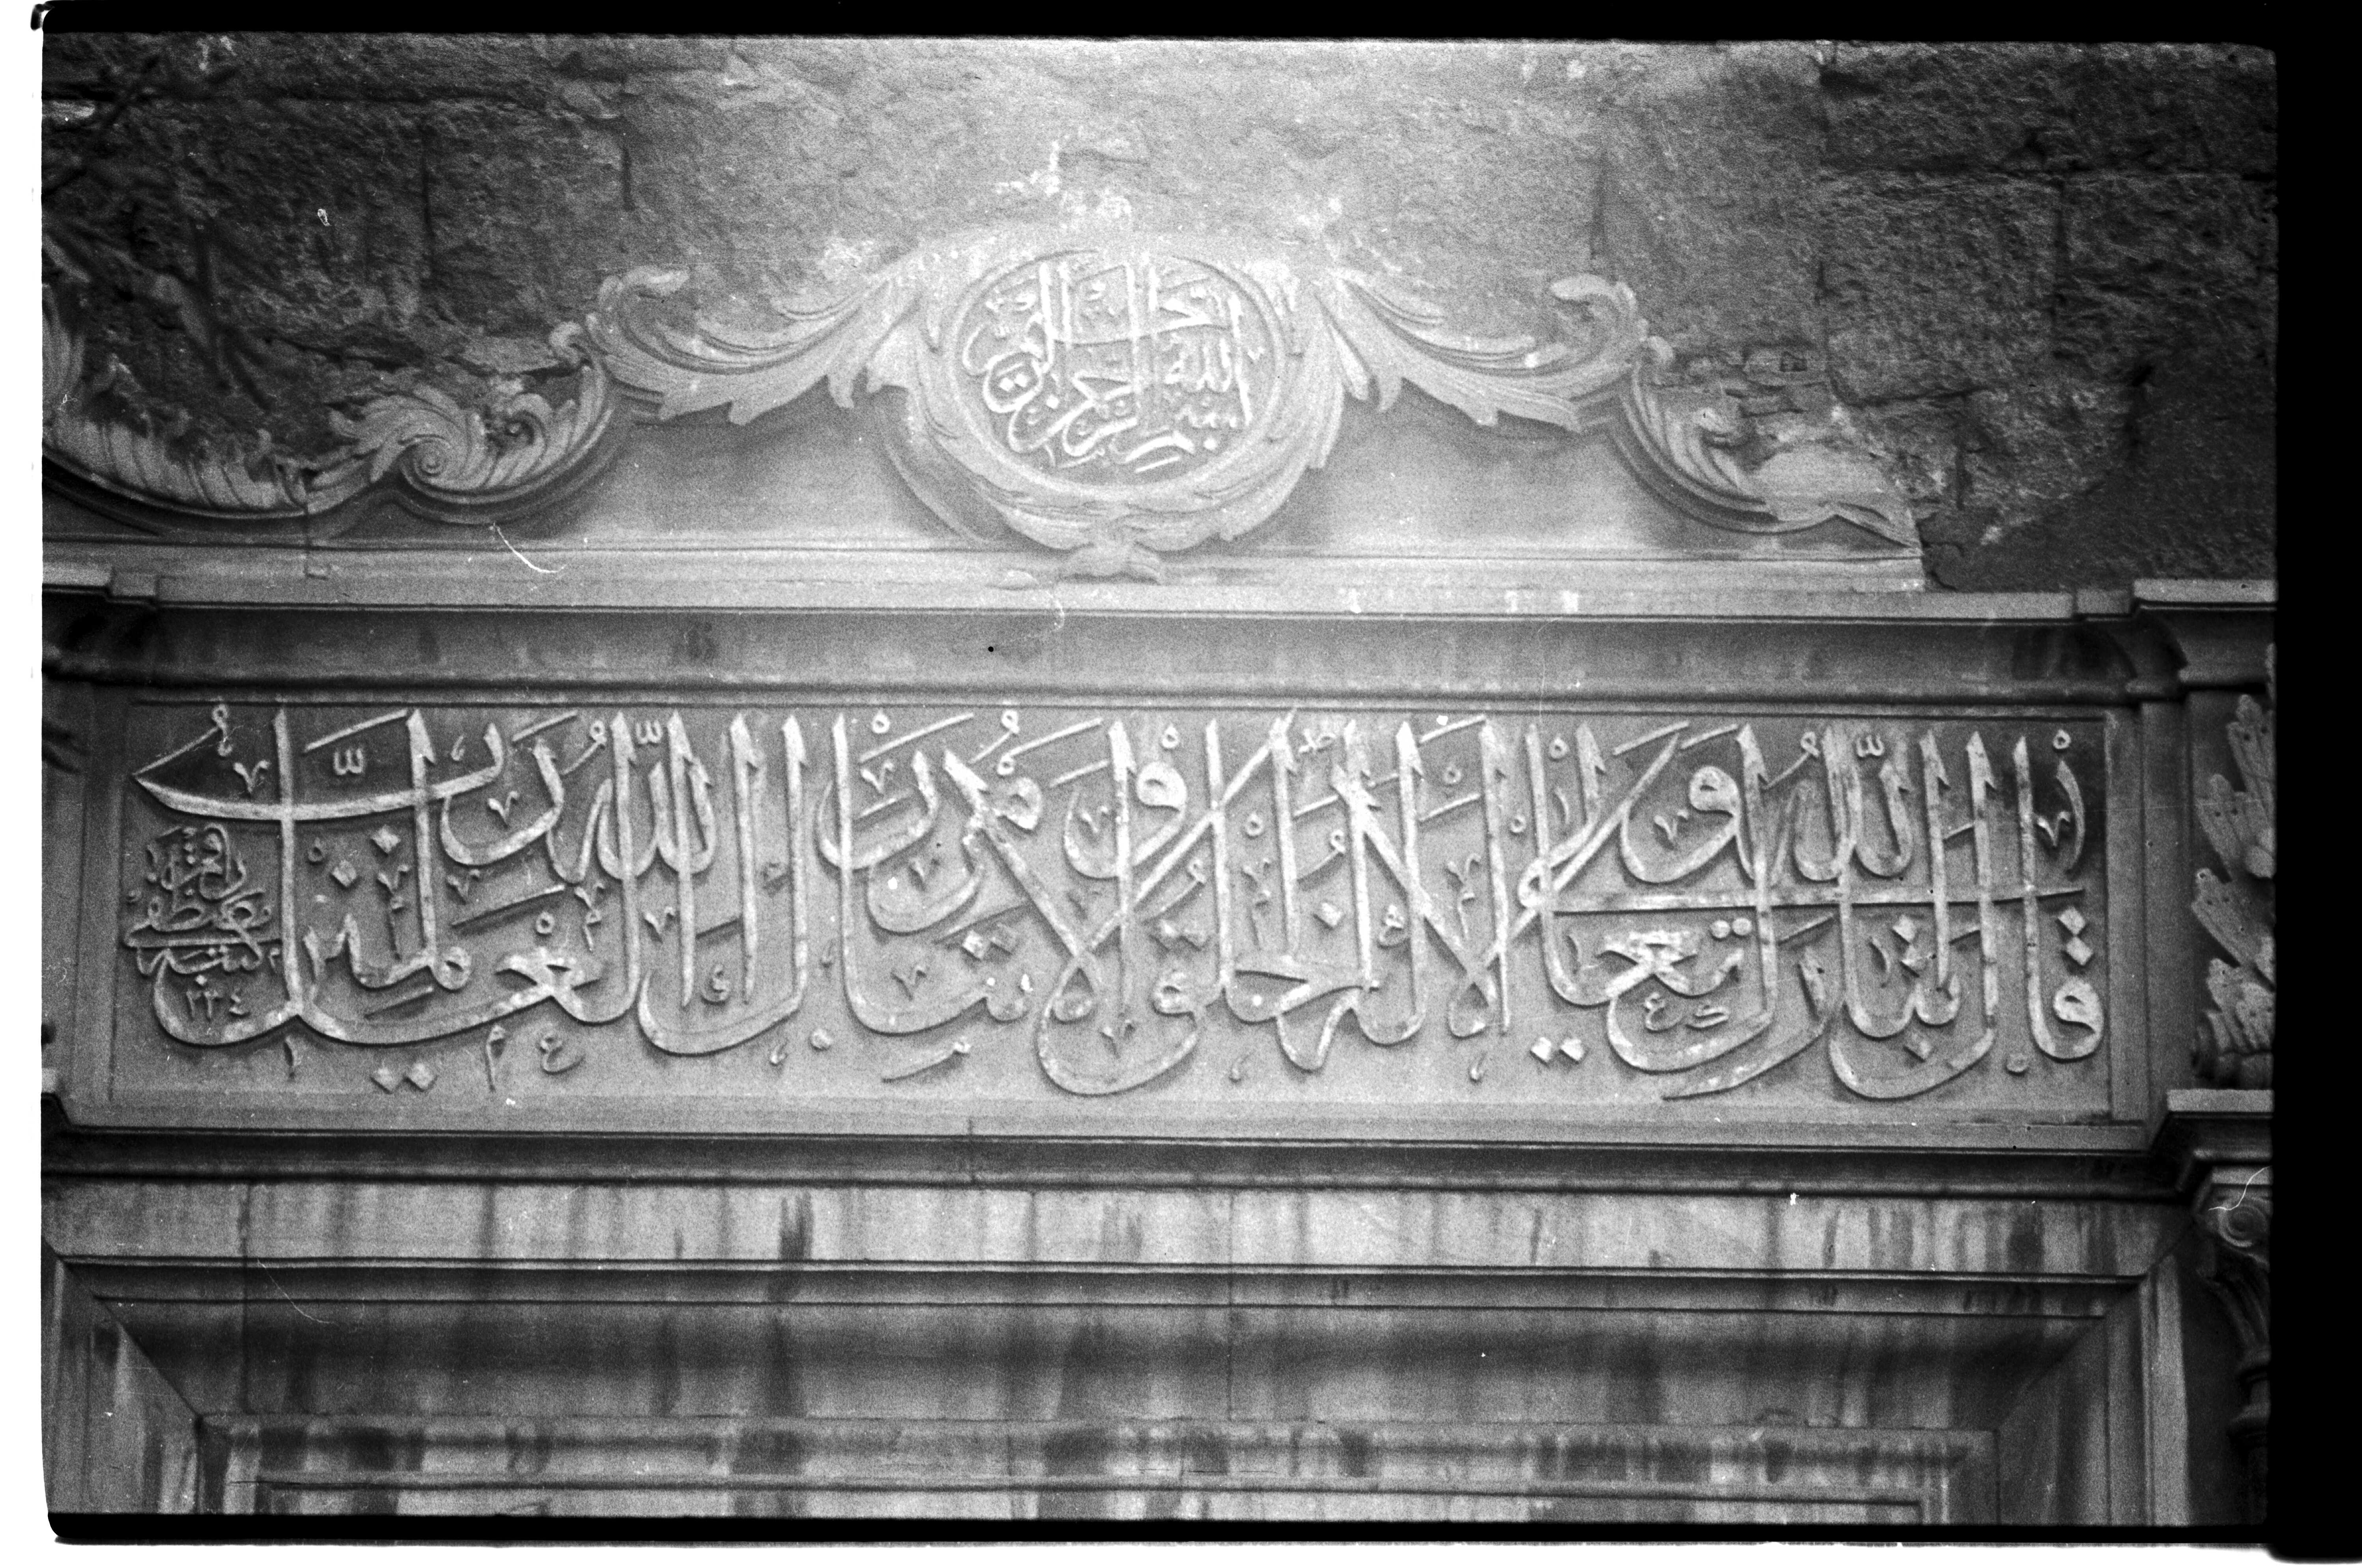 بسم الله الرحمن الرحيم
قال الله تبارك وتعالى الا له الخلق والامر تبارك الله رب العالمين
كتبه مصطفى راقم